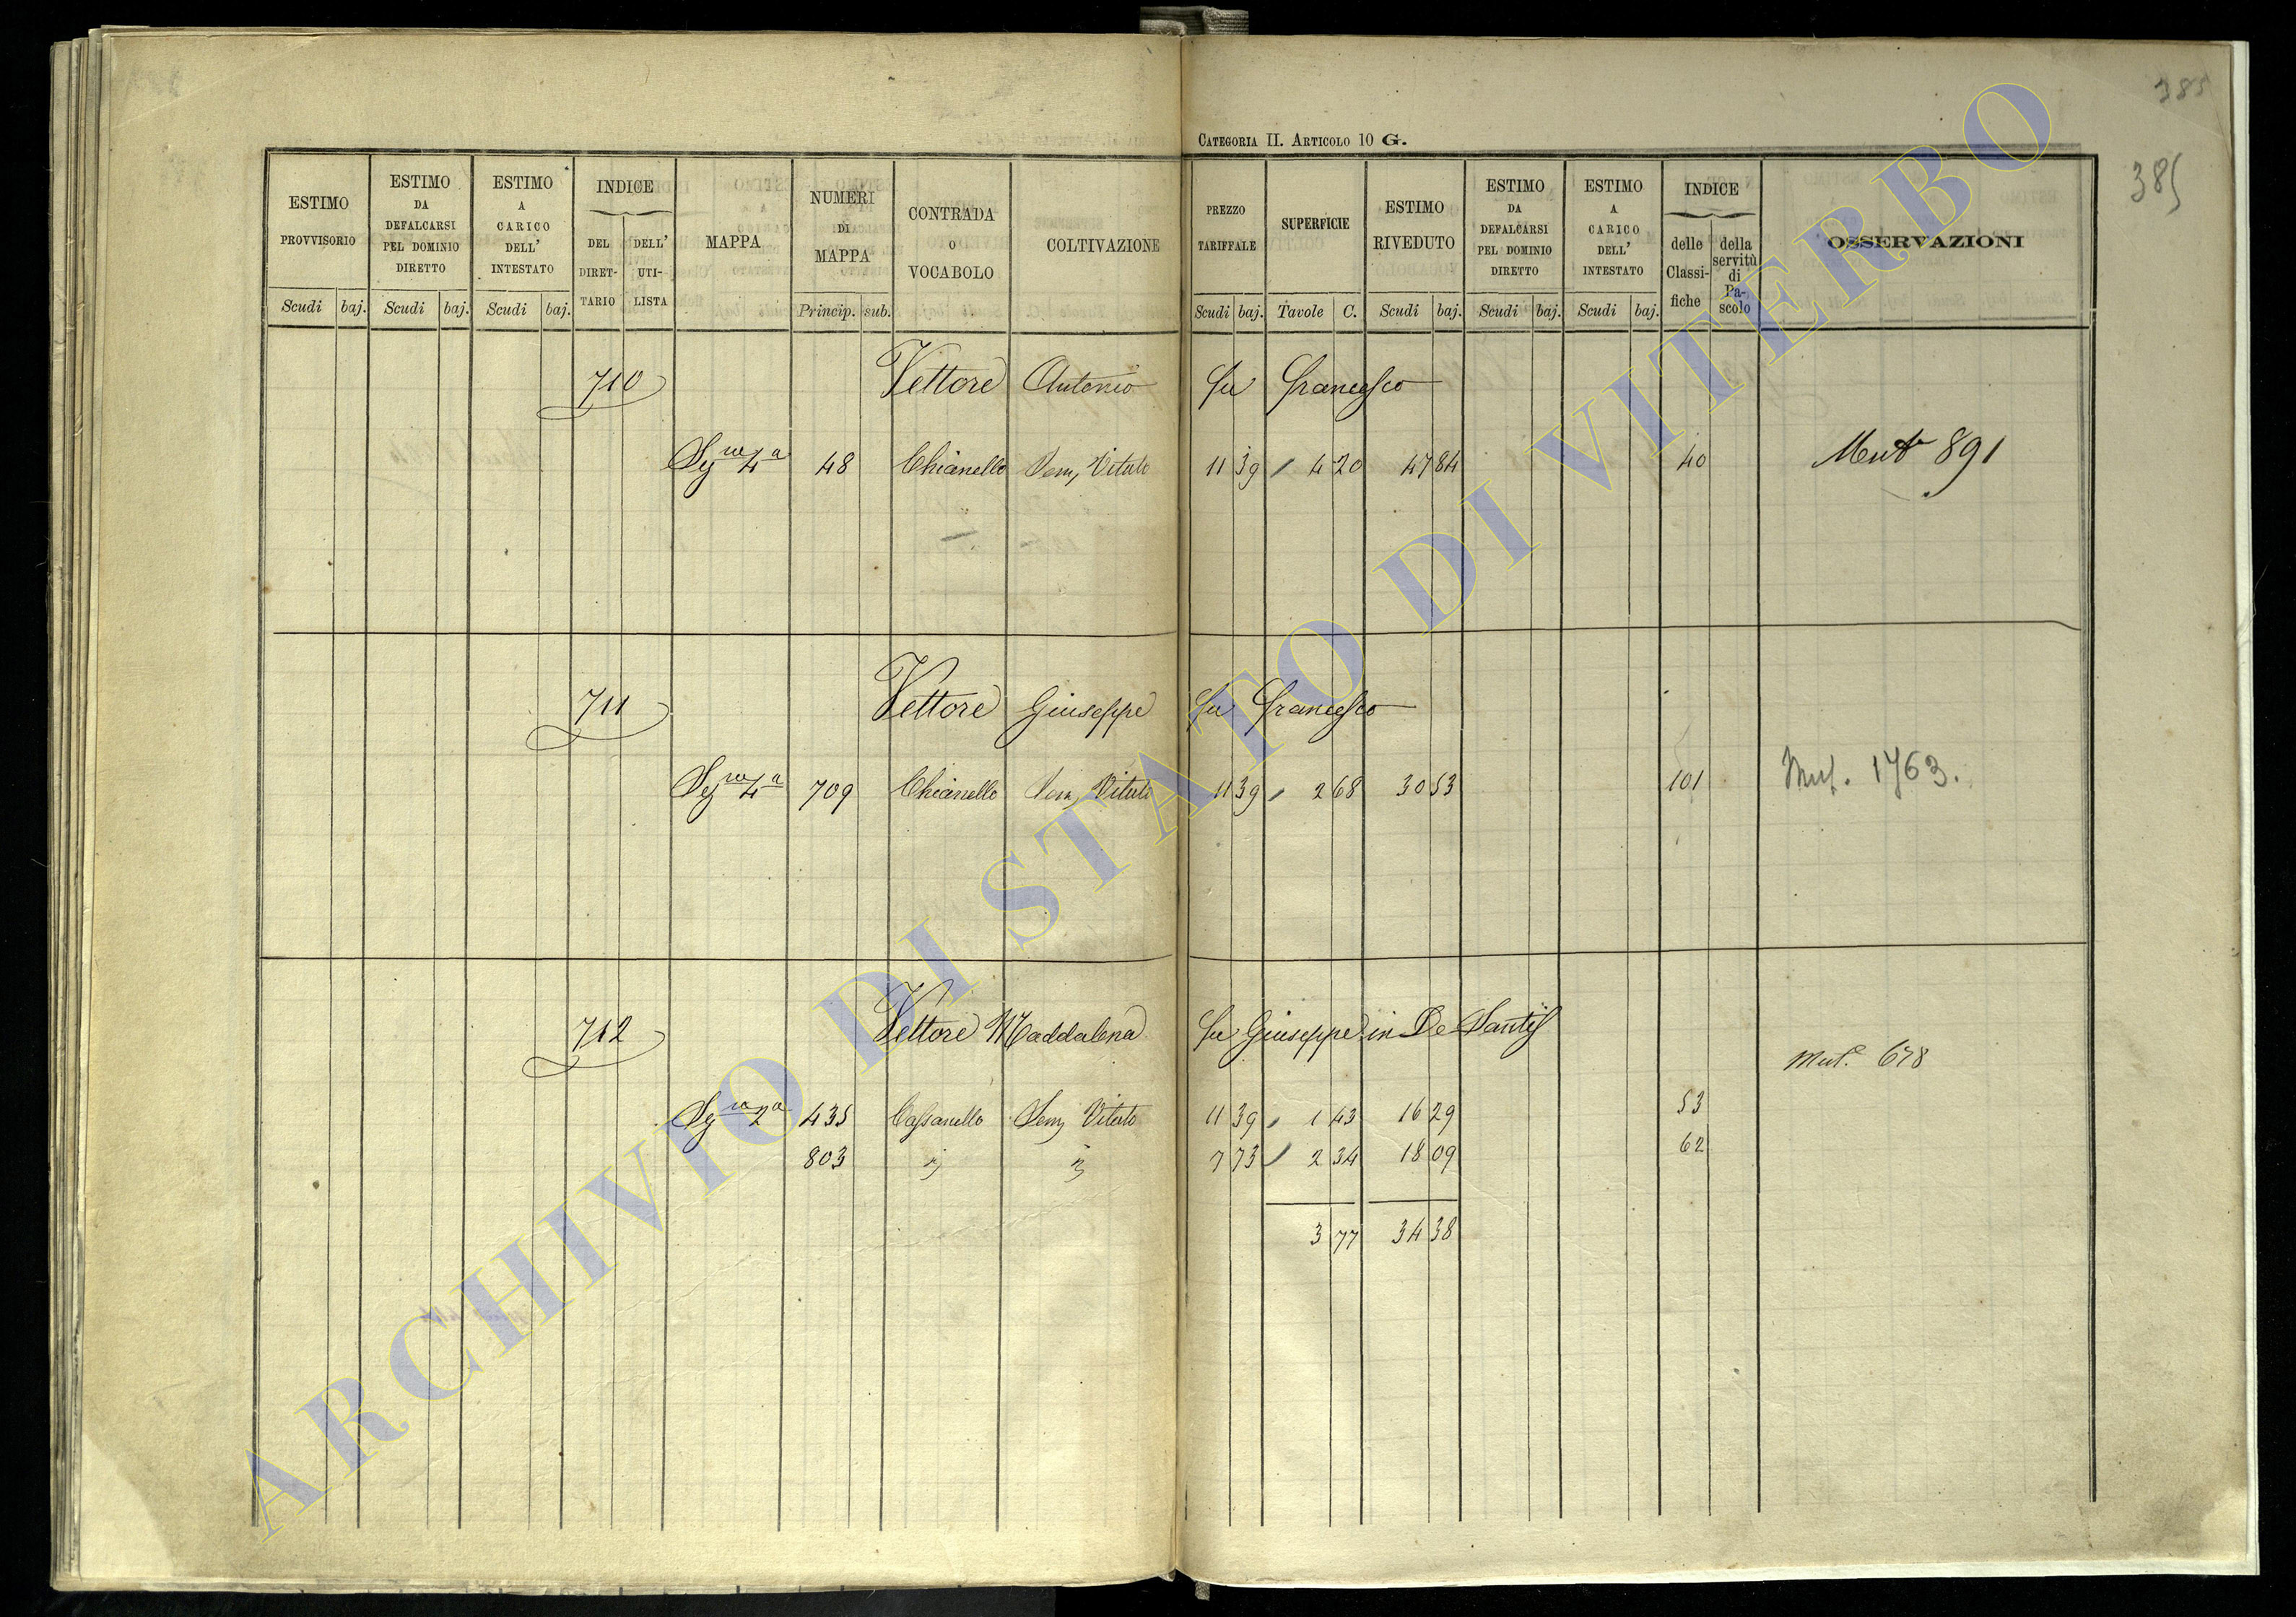 385
385
CATEGORIA II. ARTICOLO 10 G.
ESTIMO PROVVISORIO | ESTIMO DA DEFALCARSI PEL DOMINIO DIRETTO | ESTIMO A CARICO DELL' INTESTATO | INDICE DEL DIRET-TARIO | DELL' UTI-LISTA | MAPPA | NUMERI DI MAPPA | CONTRADA O VOCABOLO | COLTIVAZIONE | PREZZO TARIFFALE | SUPERFICIE | ESTIMO RIVEDUTO | ESTIMO DA DEFALCARSI PEL DOMINIO DIRETTO | ESTIMO A CARICO DELL' INTESTATO | INDICE delle Classi-fiche | della servitù di Pa-scolo | OSSERVAZIONI
Scudi baj. Scudi baj. Scudi baj. Princip. sub. Scudi baj. Tavole C. Scudi baj. Scudi baj. Scudi baj.
710 Vettore Antonio fu Francesco
Segna 4a 48 Chianello Sem, Vitato 11 39 4 20 47 84 40 Mut 891
711 Vettore Giuseppe fu Francesco
Segna 4a 709 Chianello Sem, Vitato 11 39 2 68 30 53 101 Mut. 1763.
712 Vettore Maddalena fu Giuseppe in De Santis
Mut. 678
Segna 2a 435 Cassanello Sem, Vitato 11 39 1 43 16 29 53
803 " " 7 73 2 34 18 09 62
3 77 34 38
ARCHIVIO DI STATO DI VITERBO